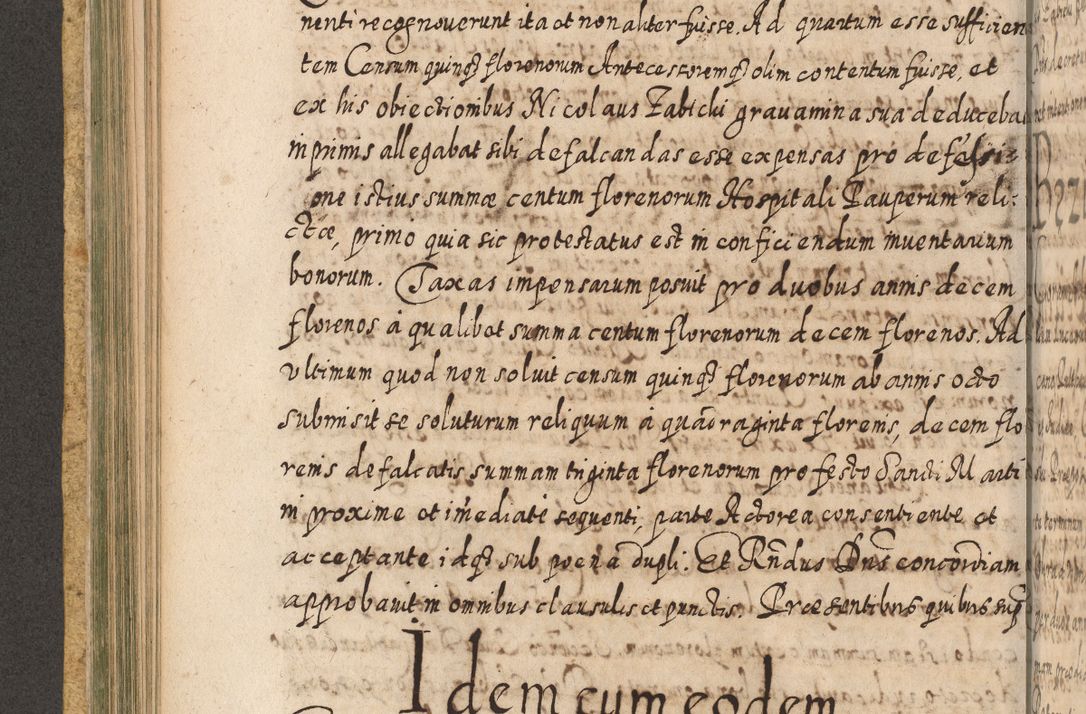 nenti recognoverunt ita et non aliter fuisse. Ad quartum esse sufficien
tem Censum quinq3 florenorum Antecessoremq3 olim contentum fuisse, et
ex his obiectionibus Nicolaus Zabicki gravamina sua deduceba
in primis allegabat sibi defalcandas esse expensas pro defensi:
one istius summæ centum florenorum Hospitali Pauperum reli:
ctæ, primo quia sic protestatus est in conficiendum inventarium
bonorum. Taxas impensarum posuit pro duobus annis decem
florenos à qualibet summa centum florenorum decem florenos. Ad
ultimum quod non soluit censum quinq3 florenorum ab annis octo
submisit se soluturum reliquum à quadraginta florenis, decem flo
renis defalcatis summam triginta florenorum pro festo Sancti Marti
ni proxime et im̃ediatè sequenti, parte Actorea consentiente et
acceptante idq3 sub poena dupli. Et Rñdus Dñs concordiam
approbavit in omnibus clausulis et punctis. Præsentibus quibus sup
Idem cum eodem